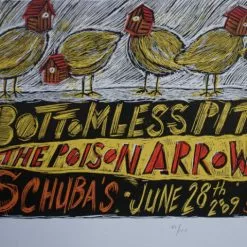 BOTTOMLESS PIT
THE POISON ARROW
SCHUBAS · JUNE 28th 2009